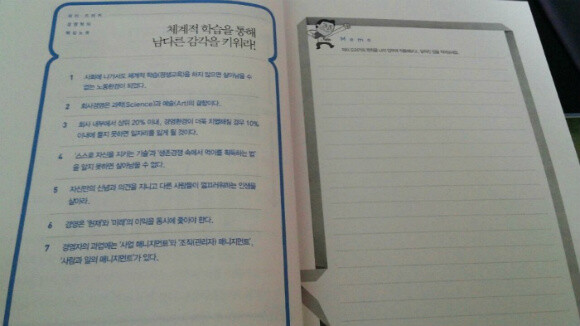 체계적 학습을 통해
남다른 감각을 키워라!
1 사회에 나가서도 체계적 학습(평생교육)을 하지 않으면 살아남을 수
없는 노동환경이 되었다.
2 회사경영은 과학(Science)과 예술(Art)의 결합이다.
3 회사 내부에서 상위 20% 이내, 경영환경이 더욱 치열해질 경우 10%
이내에 들지 못하면 일자리를 잃게 될 것이다.
4 '스스로 자신을 지키는 기술'과 '생존경쟁 속에서 먹이를 획득하는 법'
을 알지 못하면 살아남을 수 없다.
5 자신만의 신념과 의견을 지니고 다른 사람들이 부러워하는 인생을
살아라.
6 경영은 '현재'와 '미래'의 이익을 동시에 좇아야 한다.
7 경영자의 과업에는 '사업 매니지먼트'와 '조직(관리자) 매니지먼트',
'사람과 일의 매니지먼트'가 있다.
Memo